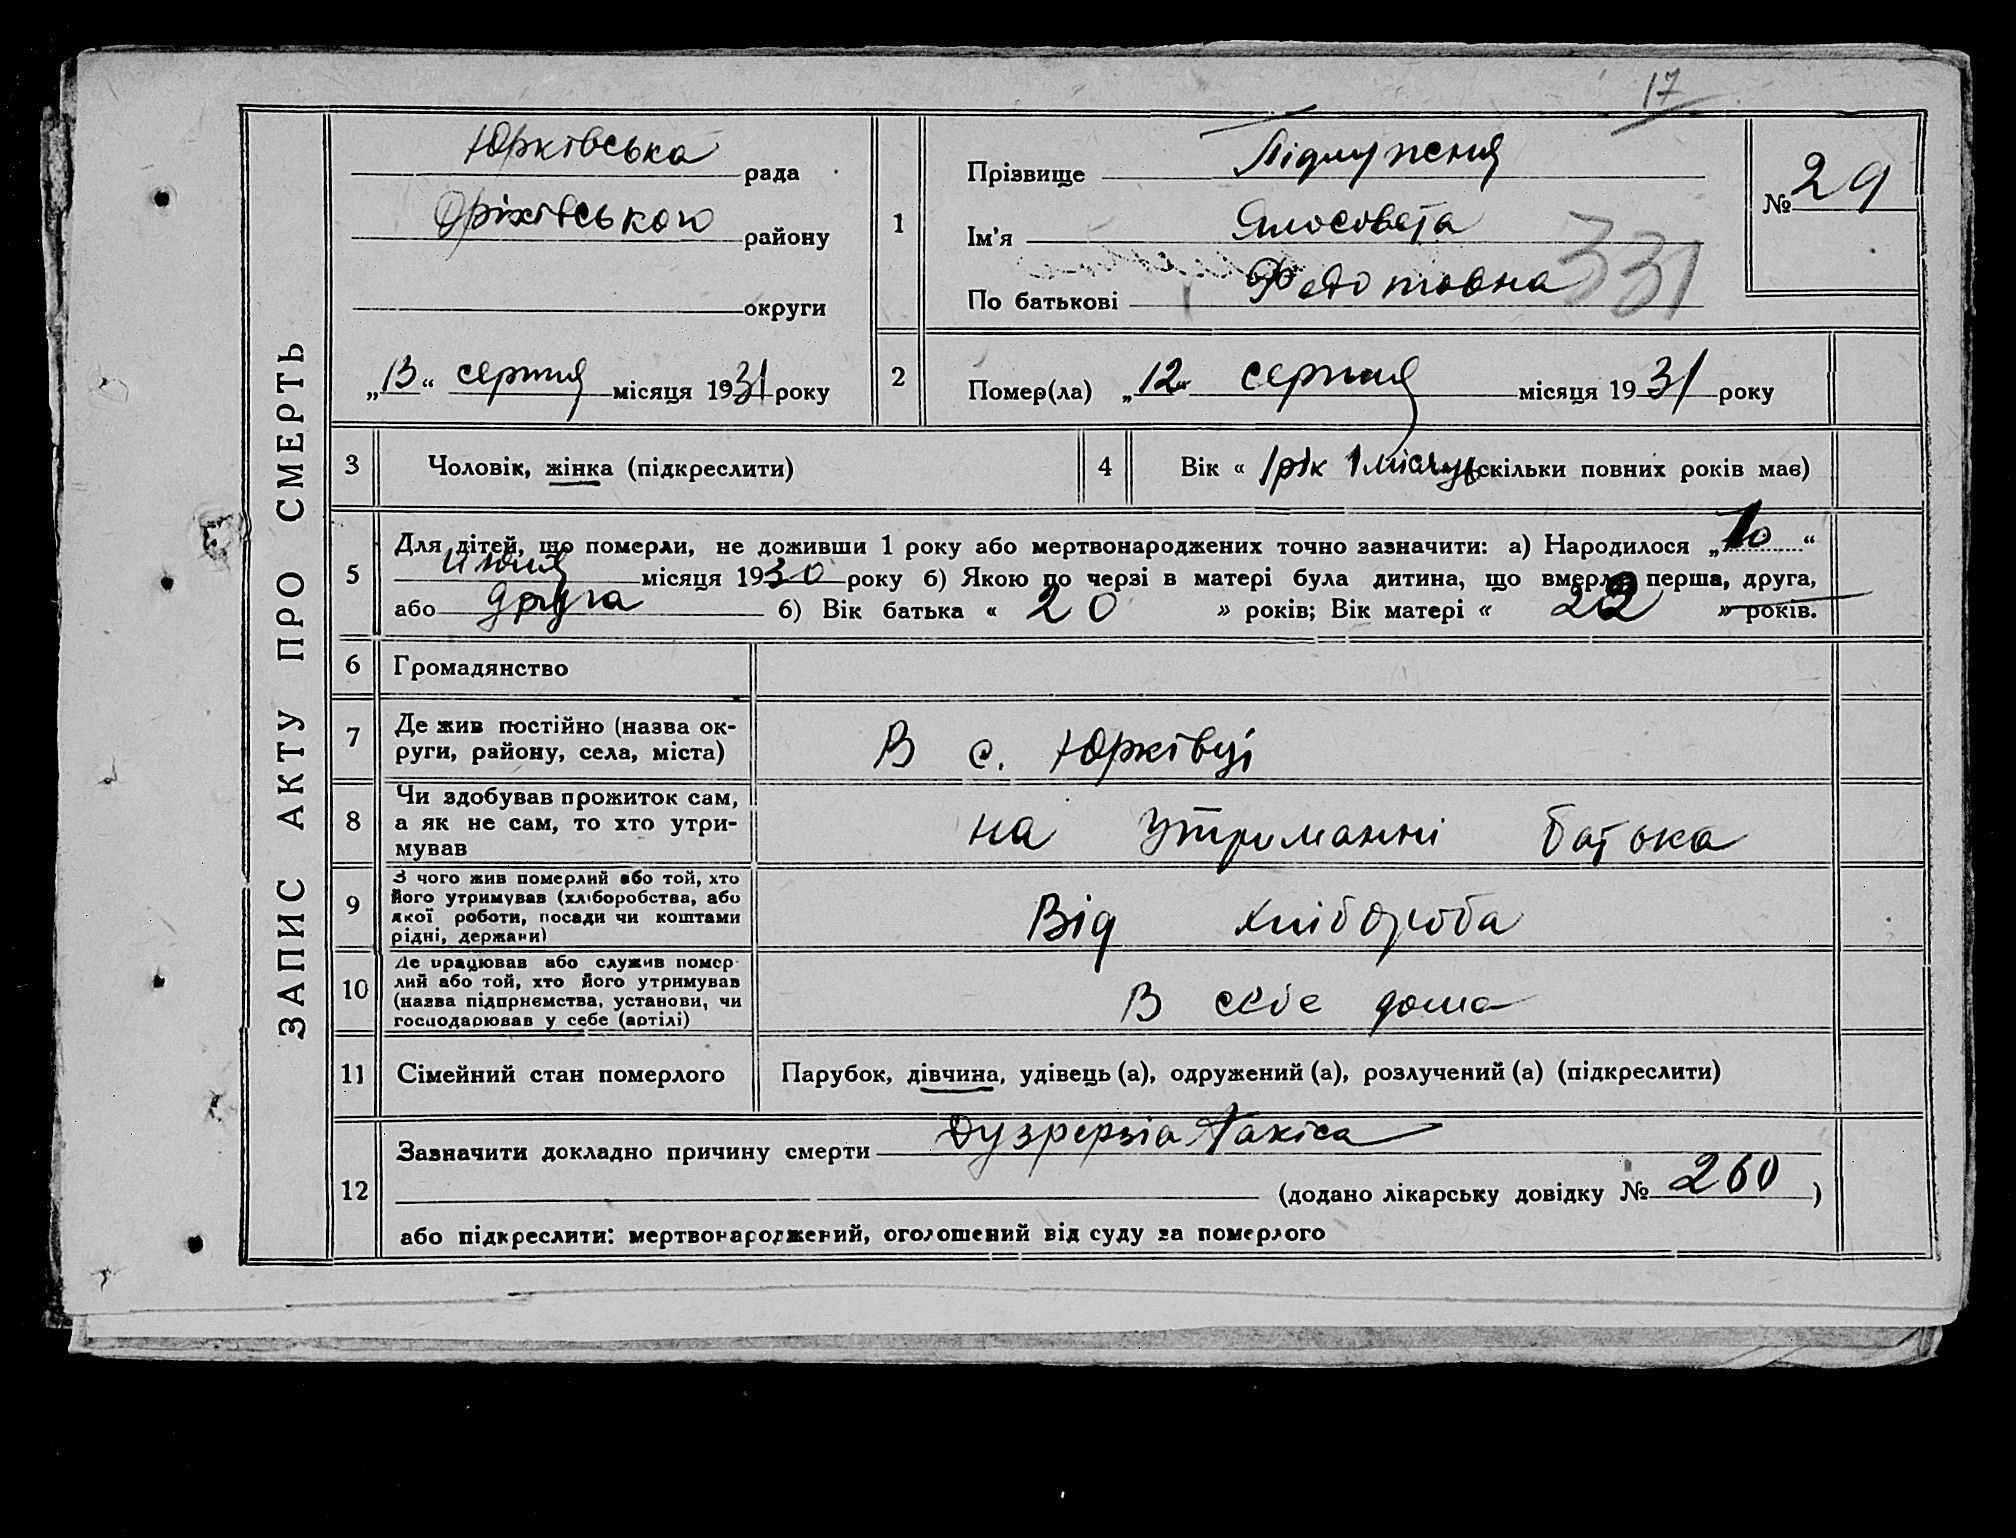 17
ЗАПИС АКТУ ПРО СМЕРТЬ
Юрківська рада
Оріхівського району
округи
„13“ серпня місяця 1931 року
1
Прізвище
Ім'я Ялосовета
По батькові Федотовна
331
№ 29
2
Помер(ла) „12“ серпня місяця 1931 року
3
Чоловік, жінка (підкреслити)
4
Вік « 1 рік 1 місяць скільки повних років має)
5
Для дітей, що померли, не доживши 1 року або мертвонароджених точно зазначити: а) Народилося „10“
июня місяця 1930 року б) Якою по черзі в матері була дитина, що вмерла перша, друга,
або друга б) Вік батька « 20 » років; Вік матері « 22 » років.
6
Громадянство
7
Де жив постійно (назва ок-
руги, району, села, міста)
В с. Юрківці
8
Чи здобував прожиток сам,
а як не сам, то хто утри-
мував
на утриманні батока
9
З чого жив померлий або той, хто
його утримував (хліборобства, або
якої роботи, посади чи коштами
рідні, держави)
Від хлібороба
10
Де працював або служив помер-
лий або той, хто його утримував
(назва підприємства, установи, чи
господарював у себе (артілі)
В себе дома
11
Сімейний стан померлого
Парубок, дівчина, удівець (а), одружений (а), розлучений (а) (підкреслити)
12
Зазначити докладно причину смерти
(додано лікарську довідку № 260)
або підкреслити: мертвонароджений, оголошений від суду за померлого